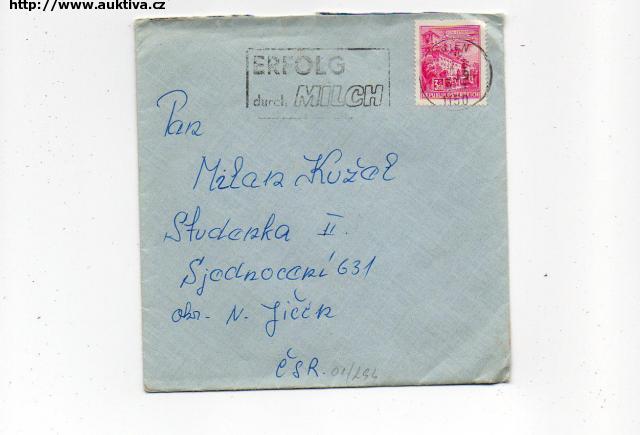 http://www.auktiva.cz
ERFOLG
durch MILCH
WIEN
1150
Pan
Milan Kužel
Studenka II.
Sjednocení 631
okr. N. Jičín
ČSR.